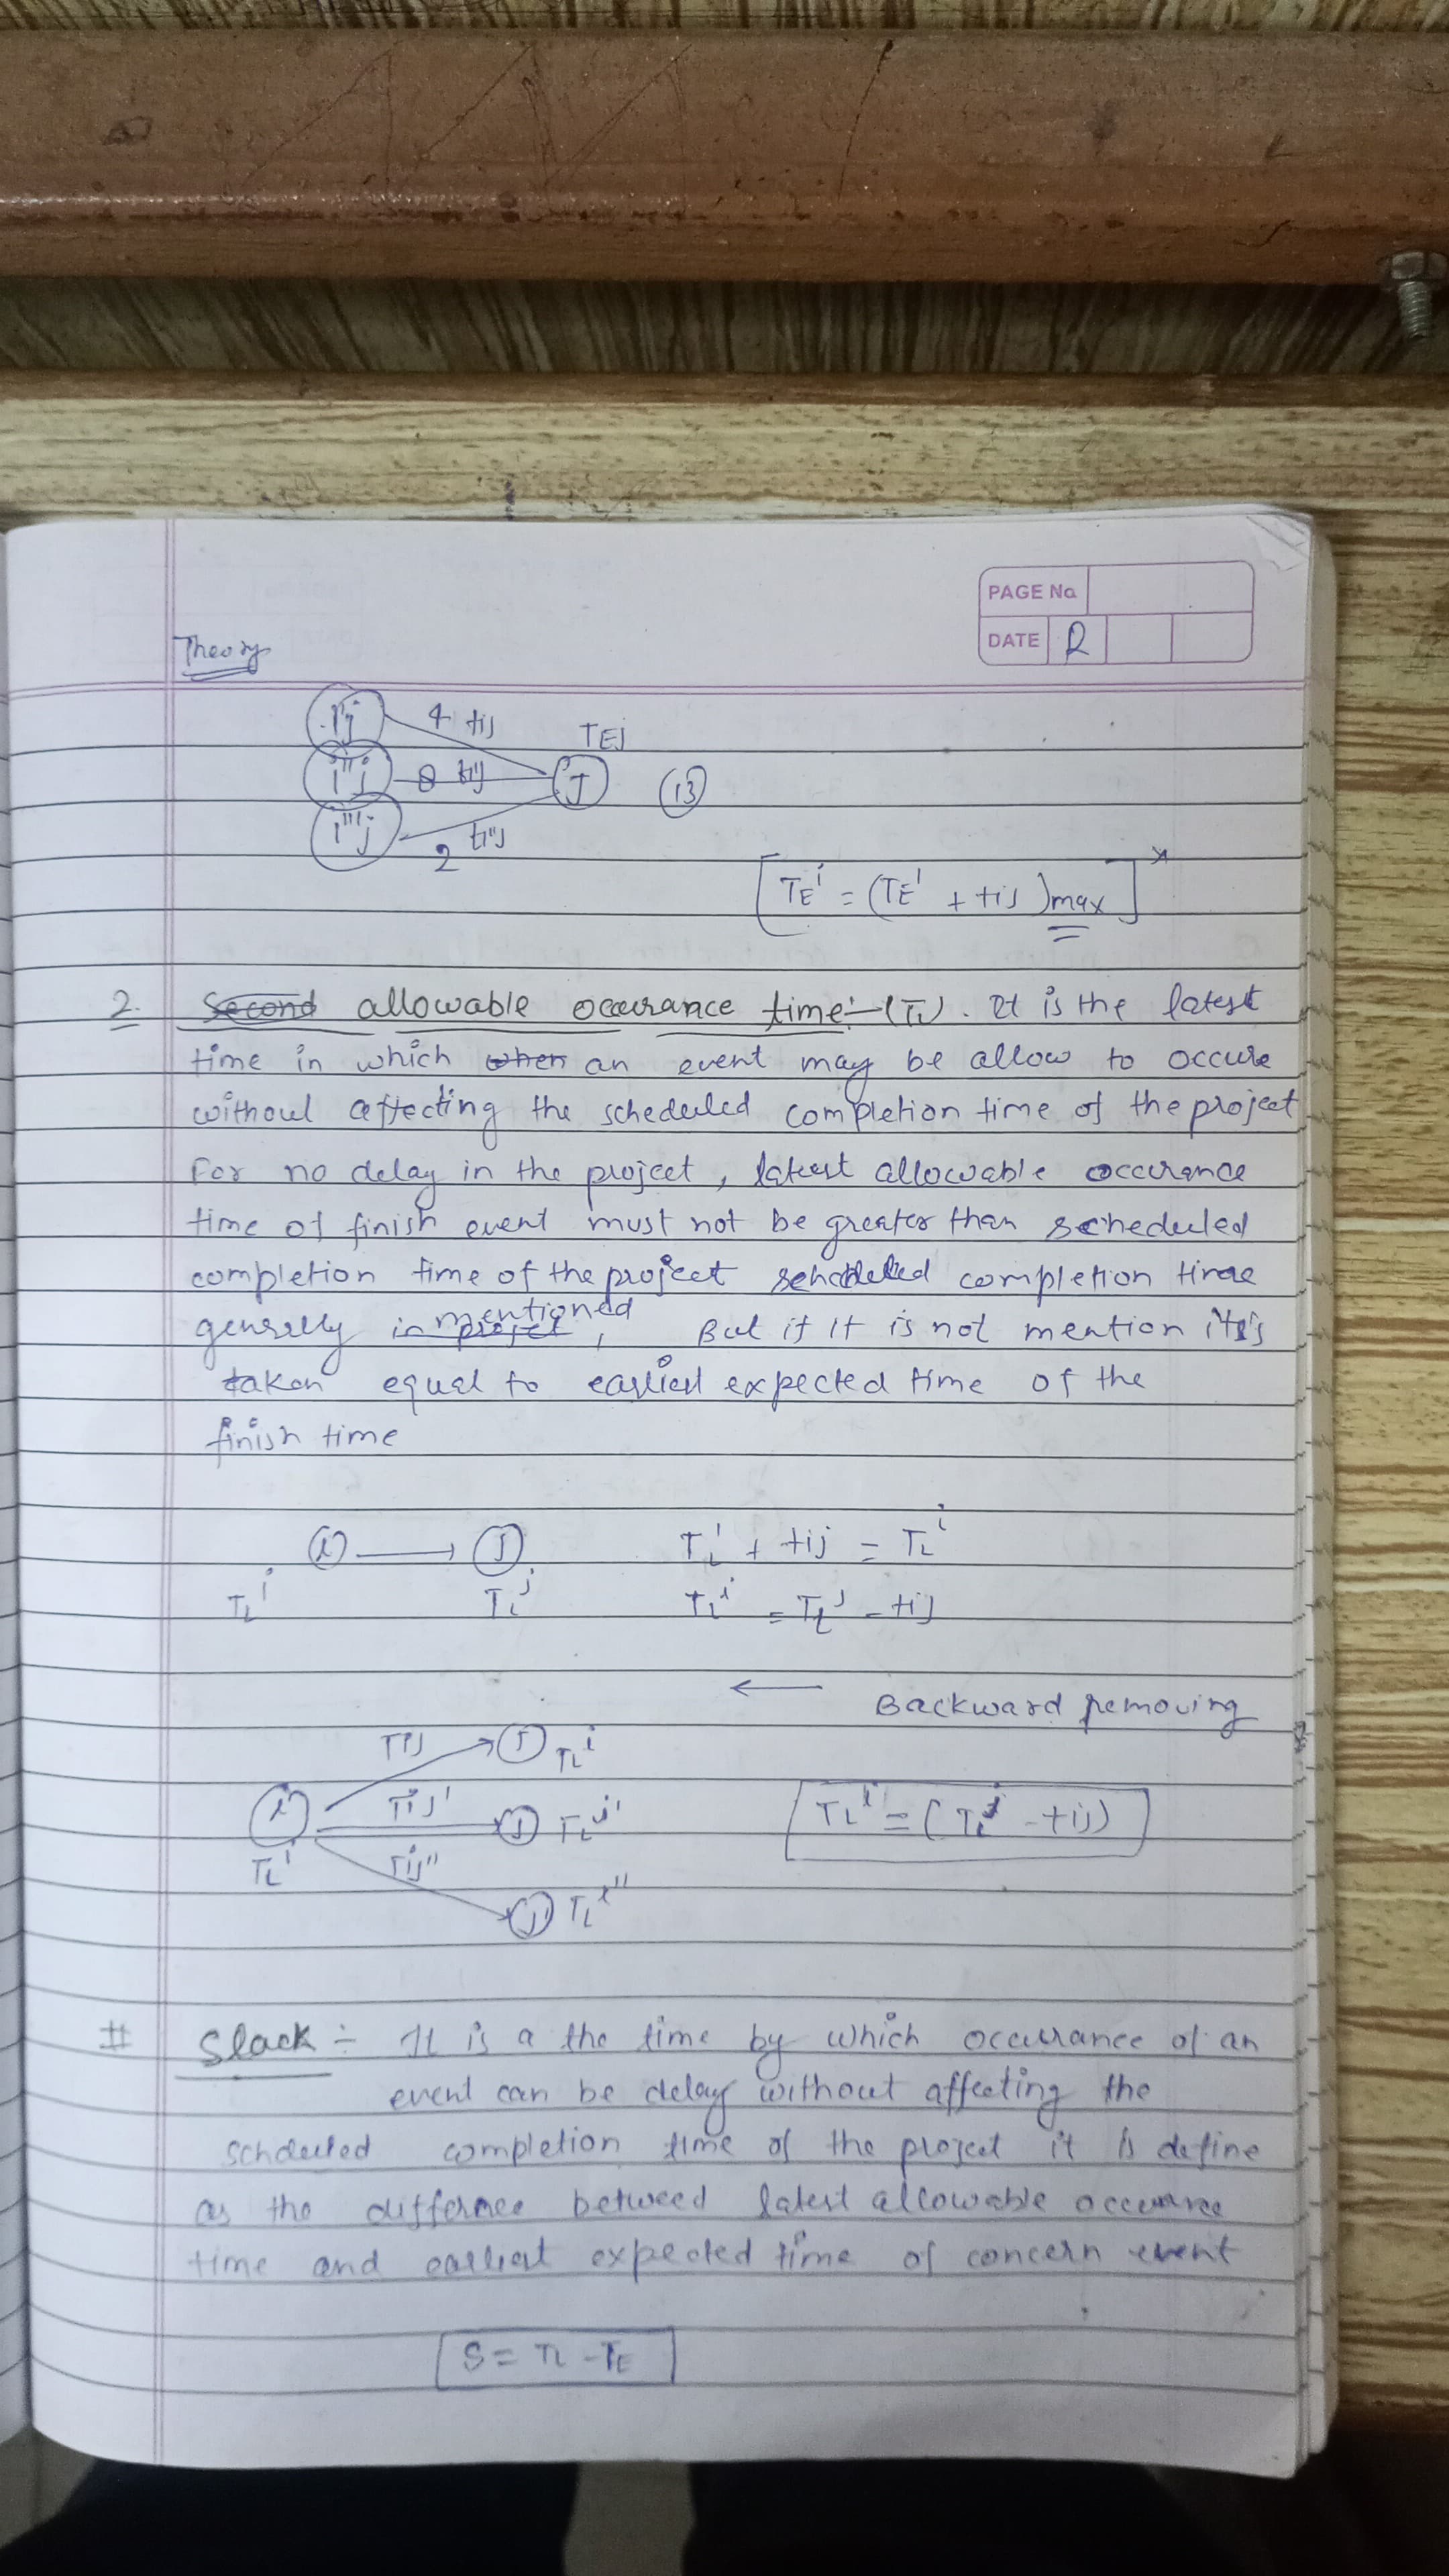 PAGE No
DATE R
Theory
i'j 4 tij TEj
i''j 8 ti'j J 13
i'''j 2 ti''j
[TE^i = (TE^i + tij)max]*
2. Second allowable occurance time:- (TL). It is the latest
time in which when an event may be allow to occure
without affecting the scheduled completion time of the project
For no delay in the project, latest allowable occurance
time of finish event must not be greater than scheduled
completion time of the project scheduled completion time
generlly in project mentioned, But if it is not mention it is
taken equal to earliest expected time of the
finish time
i → J TL^i + tij = TL^i
TL^i TL^j TL^i = TL^j - tij
← Backward removing
Tij J TL^i
i Tij' J TL^j' TL^i = (TL^j - tij)
TL^i Tij''
J TL^i''
# Slack :- It is a the time by which occurance of an
event can be delay without affecting the
scheduled completion time of the project it is define
as the differnce betweed latest allowable occurance
time and earliest expected time of concern event
S = TL - TE